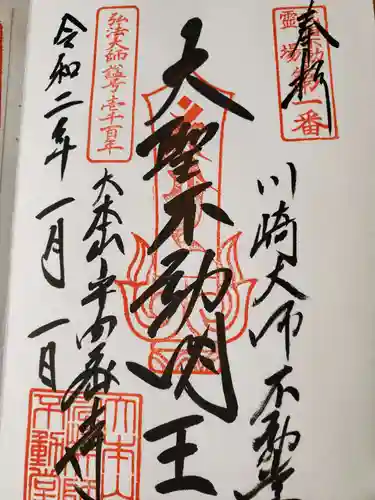 奉拝
霊場
第一番
川崎大師不動堂
大聖不動明王
弘法大師
諡号壱千百年
大本山平間寺
令和二年一月一日
大本山
不動堂